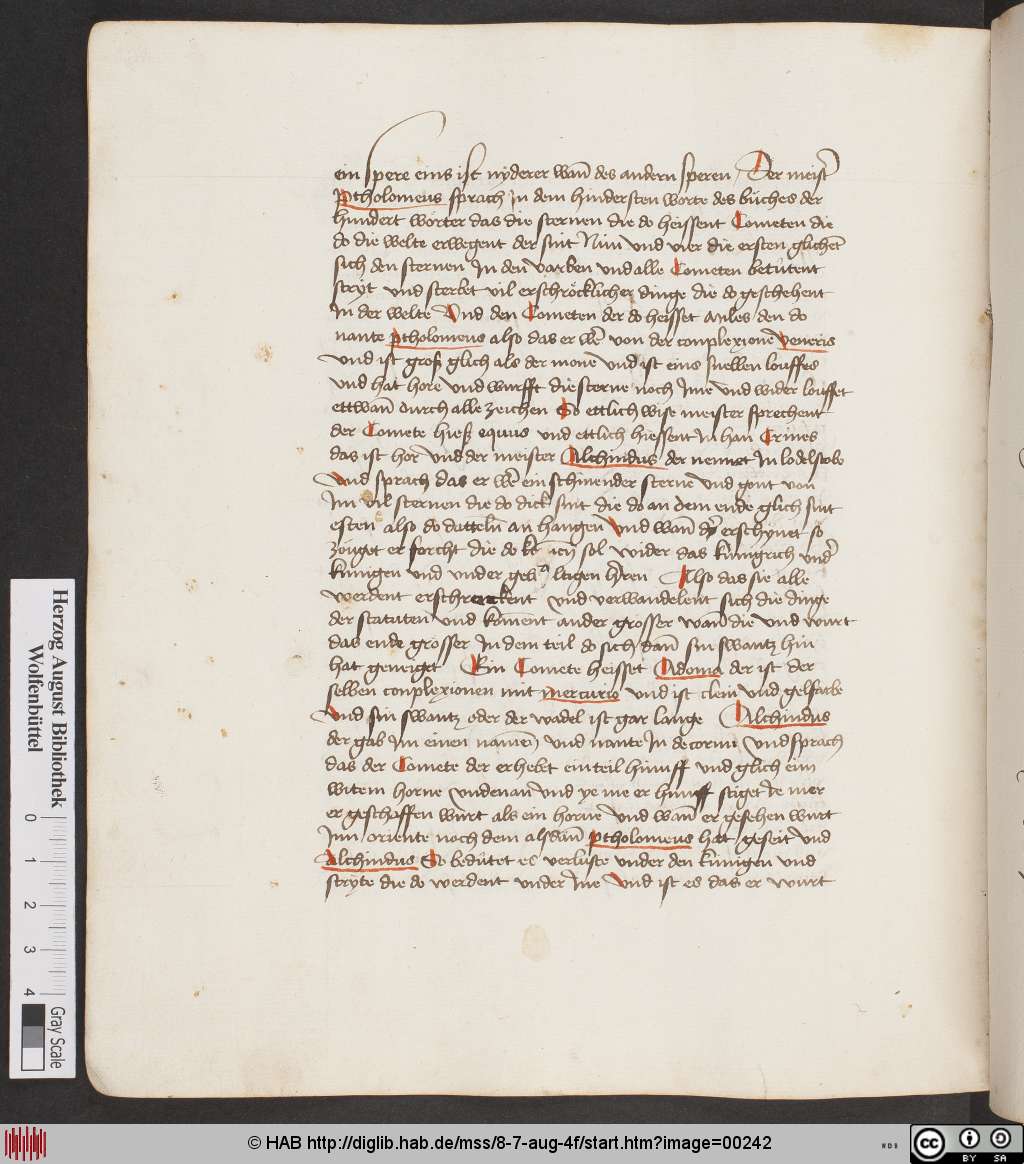 ein spere eins ist nyderer wan̄ des andern speren Der meist̄
Ptholomeus sprach In dem hindersten worte des bůches der
hundert wörter das die sternen die do heissent Cometen die
do die welte erwegent der sint Nün und vier die ersten glichet
sich den sternen In den varben vnd alle Cometen betütent
stryt und sterbet vil erschröcklicher dinge die do geschehent
In der welte Vnd den Cometen der do heisset miles den do
nante ptholomeus also das er we͛ von der conplexione veneris
und ist groß glich als der mone und ist eins snellen louffes
und hat hore und wurfft die sterne noch Ime und wider louffet
ettwan̄ durch alle zeichen So ettlich wise meister sprechent
der Comete hieß equus und ettlich hiessent In han Crines
das ist hor und der meister Alchindus der nennet In
Vnd sprach das er we͛ ein schinender sterne und gont von
Im vil sternen die do dick sint die do an dem ende glich sint
esten also do datteln̄ an hangen Vnd wan̄ erschynet so
zöuget er forcht die do sol wider das künigrich und͛
künigen und under lütgen h͛ren Also das sie alle
werdent erschrockent und verwandelent sich die dinge
der statuten und kōment ander grosser wan̄ die und wurt
das ende grosser In dem teil do sich dan̄ sin swantz hin
hat geneiget Ein Comete heisset Adoma der ist der
selben conplexionen mit mercurio und ist clein und gelfarbe
Vnd sin swantz oder der wadel ist gar lange Alchindus
der gab Im einen namen und nante In decorum vnd sprach
das der Comete der erhebt ein teil hinuff und glich eim
witem horne vndenan vnd ye me er hinuff stiget Ie mer
er geschaffen wurt als ein horne und wan̄ er gesehen wurt
Inn oriente noch dem alsdan̄ ptholomeus hat geseit und
Alchindus So bedütet es verluste under den künigen und
stryte die do werdent under Ine Vnd ist es das er wurt
Herzog August Bibliothek
Wolfenbüttel
0 1 2 3 4
Gray Scale
© HAB http://diglib.hab.de/mss/8-7-aug-4f/start.htm?image=00242
WDB
cc BY SA